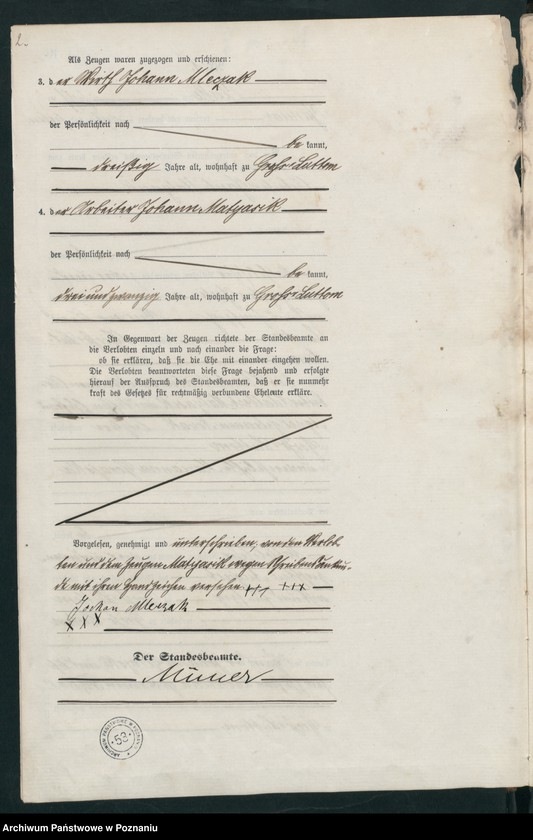 2.
Als Zeugen waren zugezogen und erschienen:
3. der Wirth Johann Mleczak
der Persönlichkeit nach
be kannt,
dreißig Jahre alt, wohnhaft zu Groß Luttom
4. der Arbeiter Johann Matysik
der Persönlichkeit nach
be kannt,
dreiundzwanzig Jahre alt, wohnhaft zu Groß Luttom
In Gegenwart der Zeugen richtete der Standesbeamte an
die Verlobten einzeln und nach einander die Frage:
ob sie erklären, daß sie die Ehe mit einander eingehen wollen.
Die Verlobten beantworteten diese Frage bejahend und erfolgte
hierauf der Ausspruch des Standesbeamten, daß er sie nunmehr
kraft des Gesetzes für rechtmäßig verbundene Eheleute erkläre.
Vorgelesen, genehmigt und unterschrieben, von den Verlob-
ten und dem Zeugen Matysik wegen Schreibensunkun-
de mit ihren Handzeichen versehen +++ +++
Johan Mleczak
XXX
Der Standesbeamte.
ARCHIWUM PAŃSTWOWE W POZNANIU
53
Archiwum Państwowe w Poznaniu